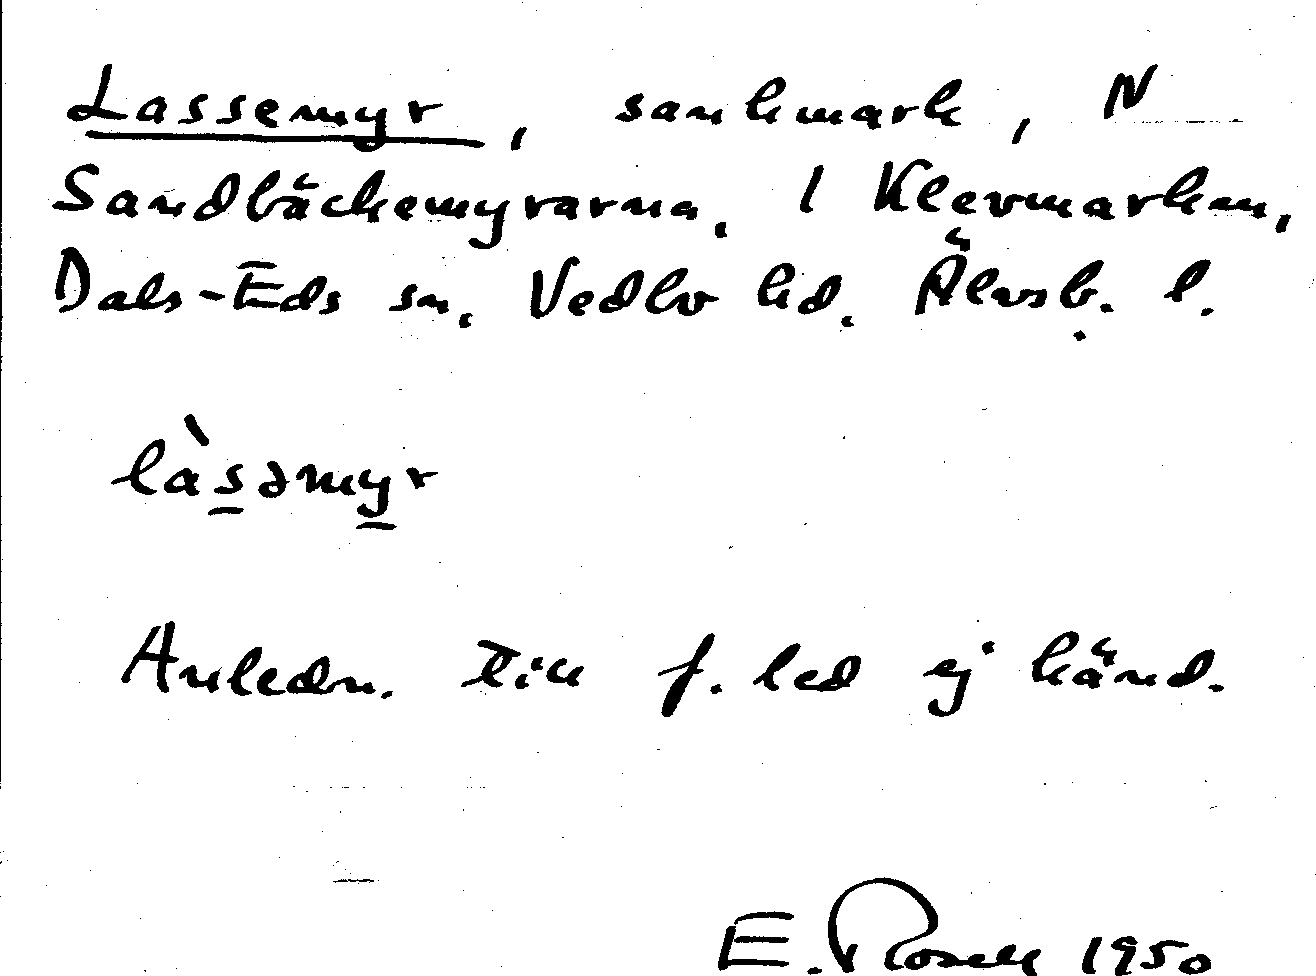 Lassemyr, sankmark, N
Sandbäckemyrarna, I Klevmarken,
Dals-Eds sn, Vedbo hd. Älvsb. l.
làsəmyr
Anledn. till f. led ej känd.
E. Rosell 1950